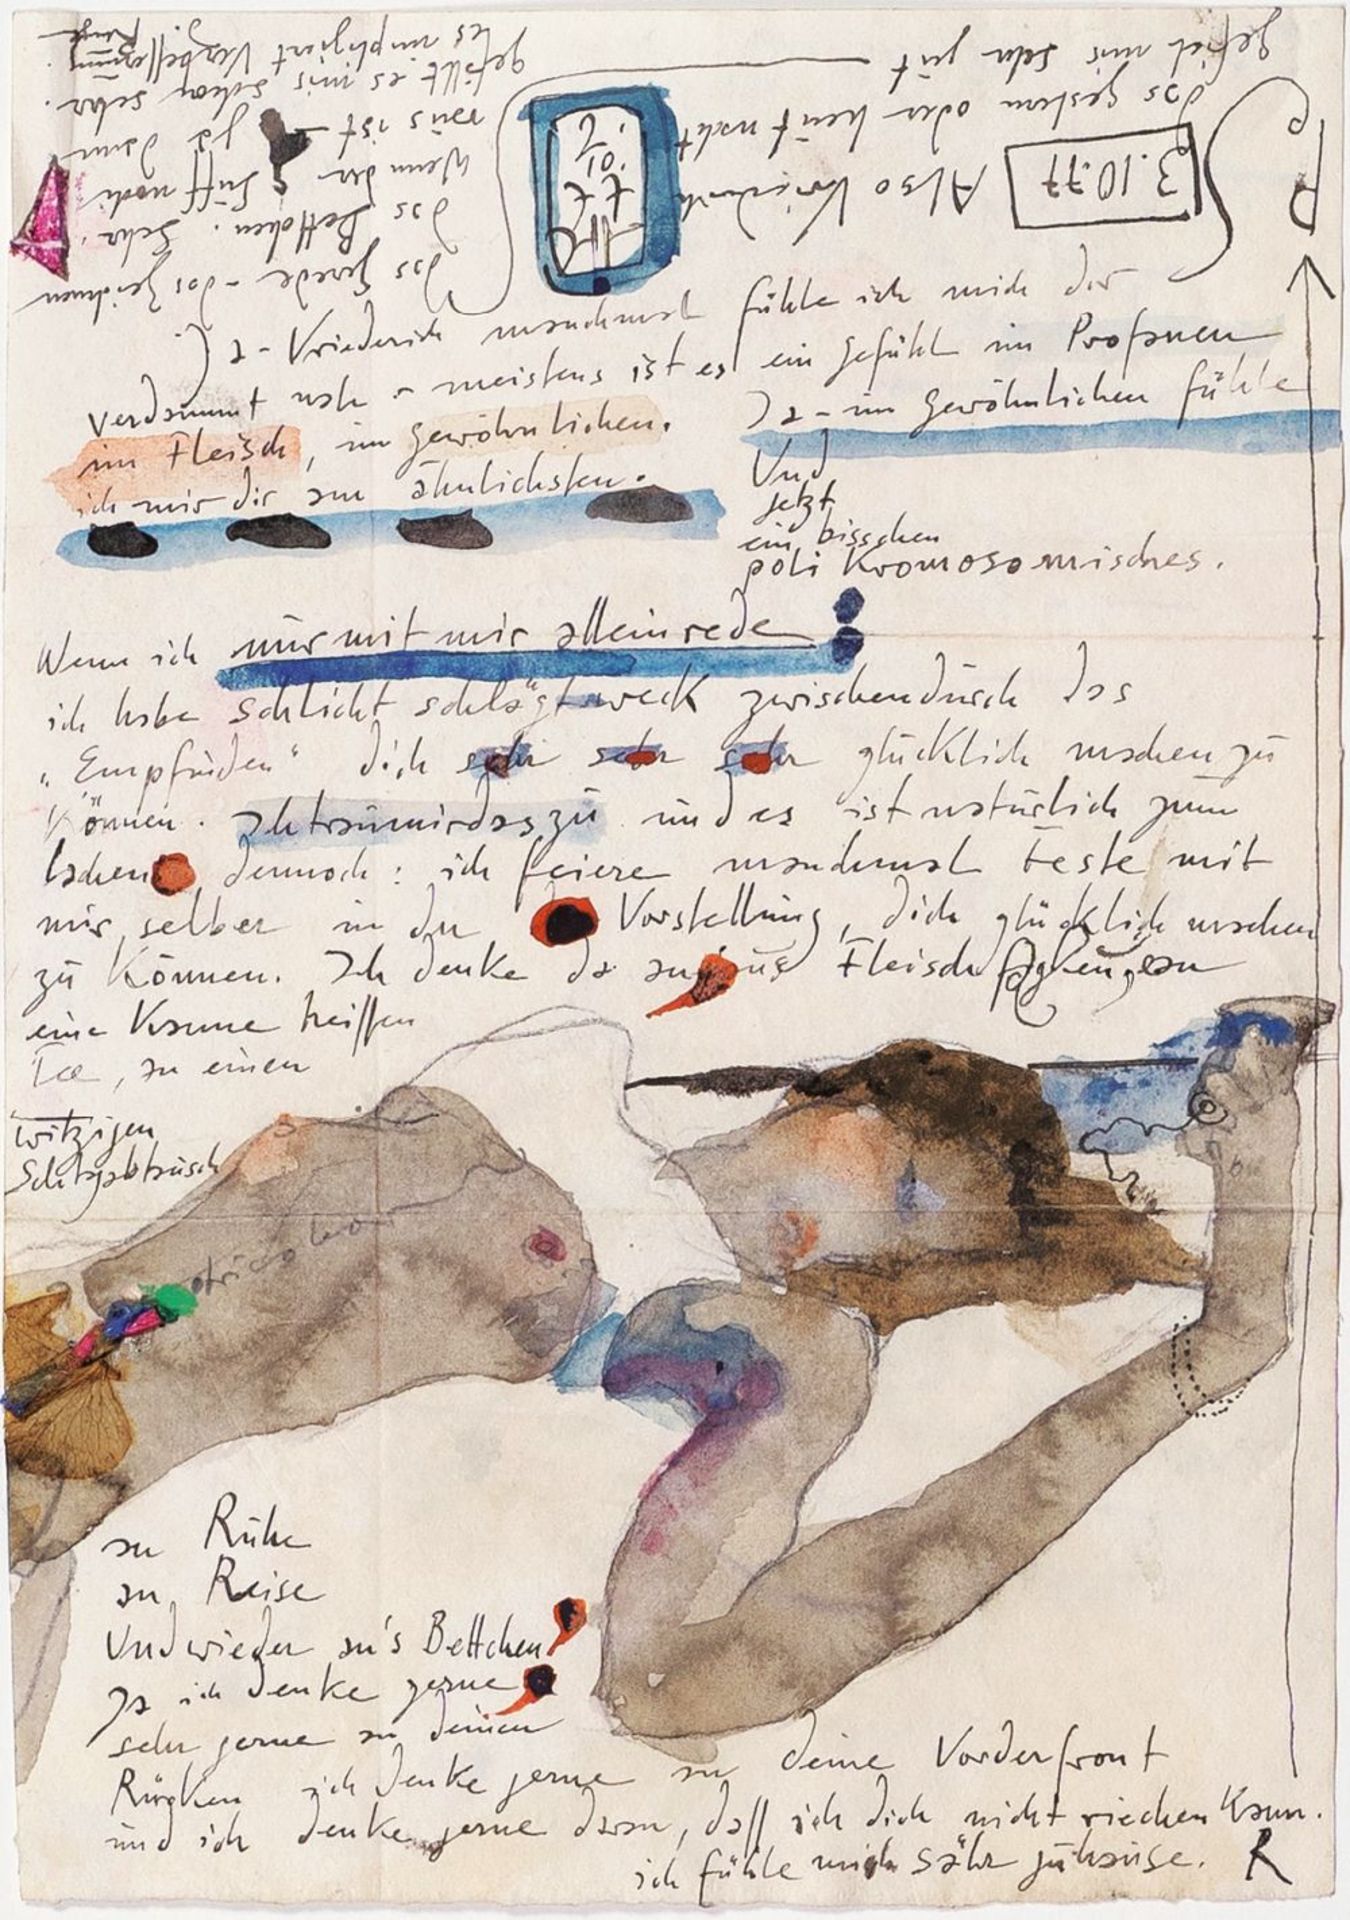 Ja - Kriederich manchmal fühle ich mich dir
verdammt nah - meistens ist es ein Gefühl im Profanen
im Fleisch, im Gewöhnlichen.
Ja - im Gewöhnlichen fühle
ich mir dir am ähnlichsten.
Und
jetzt
ein bisschen
poli Kromosomisches.
Wenn ich nur mit mir allein rede
ich habe schlicht schlägtweck zwischendurch das
"Empfinden" dich sehr sehr sehr glücklich machen zu
können. Ich trau mir das zu und es ist natürlich zum
lachen dennoch: ich feiere manchmal Feste mit
mir selber in der Vorstellung, dich glücklich machen
zu können. Ich denke da an Fleisch
eine Kanne heissen
Tee, an einen
witzigen
Schlagabtausch
an Ruhe
an Reise
Und wieder an's Bettchen
Ja ich denke gerne
sehr gerne an deinen
Rücken ich denke gerne an deine Vorderfront
und ich denke gerne daran, daß ich dich nicht riechen kann.
ich fühle mich sähr zuhause. R
PS
3.10.77 Also Kriederich
das gestern oder heut nacht
gefiel mir sehr gut
das Gerede - das Zeichnen
das Bettchen. Sehr.
Wenn der Suff noch
raus ist - Ja dann
gefällt es mir schon sehr.
es impliziert Verbesserung